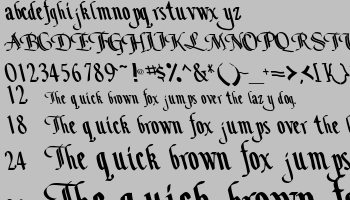 abcdefghijklmnopqrstuvwxyz
ABCDEFGHIJKLMNOPQRSTU
0123456789~!@#$%^&*()-_+=>,<{}
12 The quick brown fox jumps over the lazy dog.
18 The quick brown fox jumps over the l
24 The quick brown fox jumps
The quick brown fo